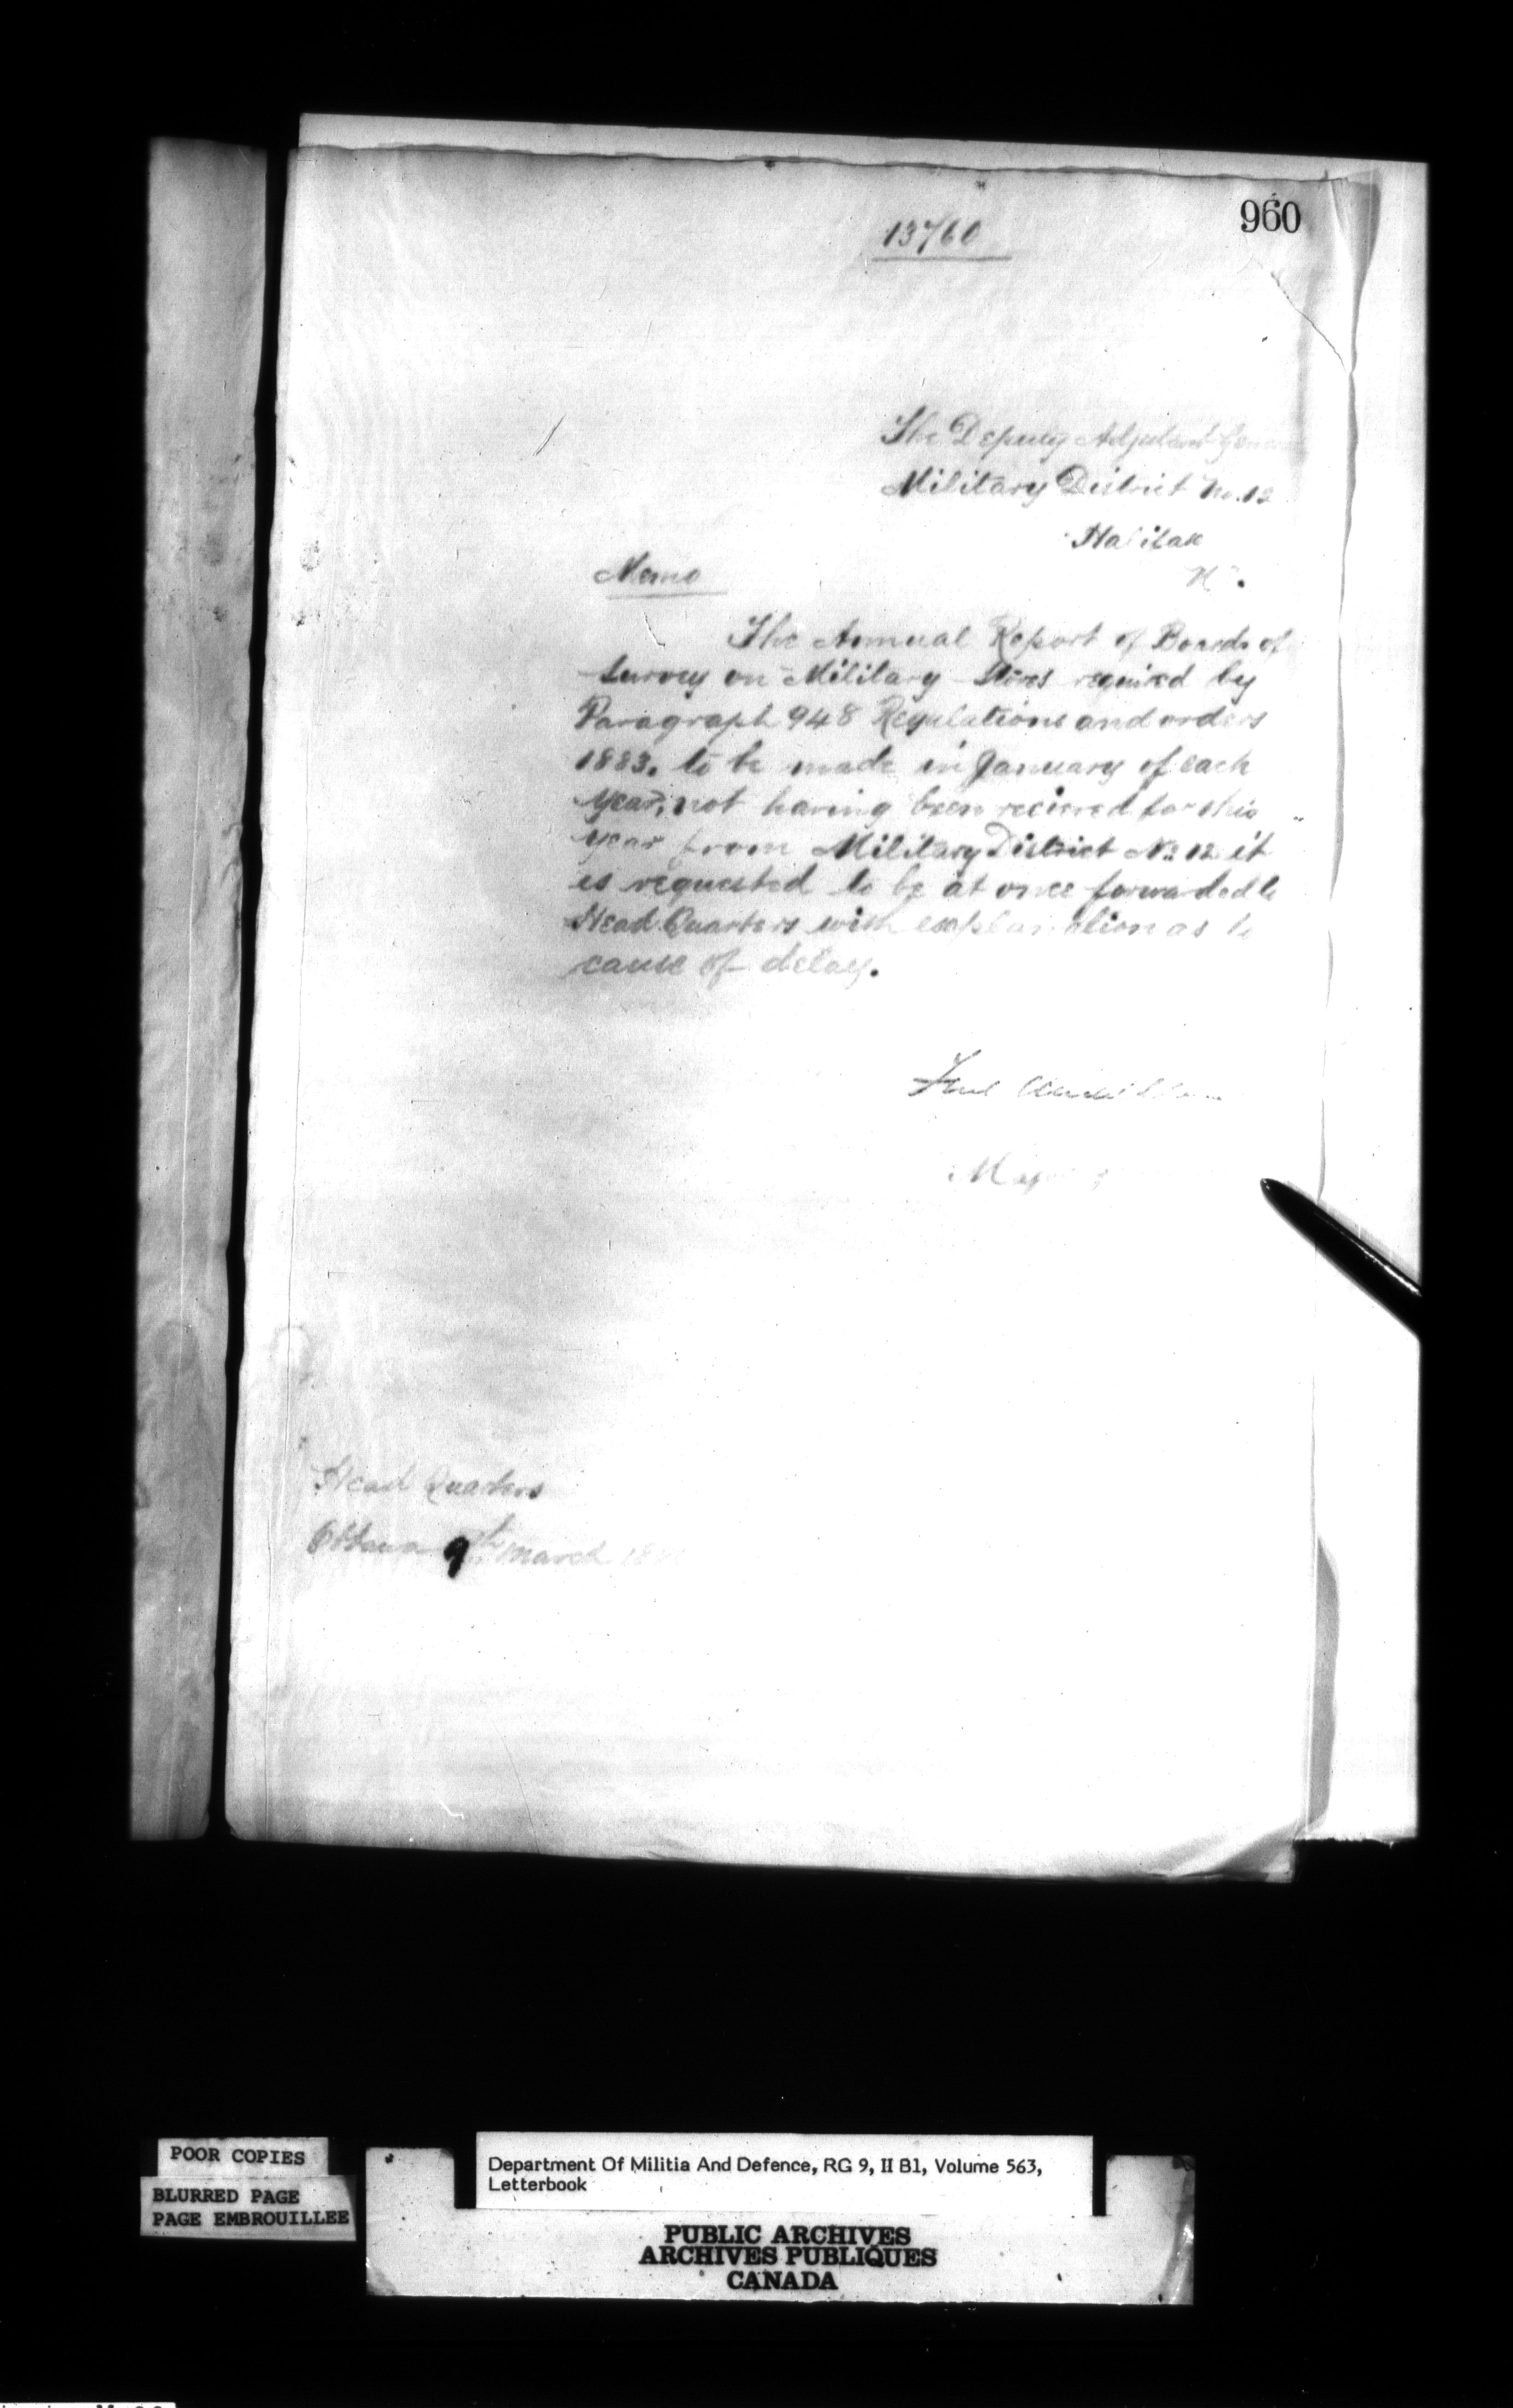 960
13760
The Deputy Adjutant General
Military District No. 12
Halifax
N
Memo
The Annual Report of Boards of
Survey on Military Stores required by
Paragraph 948 Regulations and orders
1883. to be made in January of each
year, not having been recieved for this
year from Military District No. 12 it
is requested to be at once forwarded to
Head Quarters with explanation as to
cause of delay.
Head Quarters
Ottawa 9th March 18
POOR COPIES
BLURRED PAGE
PAGE EMBROUILLEE
Department Of Militia And Defence, RG 9, II B1, Volume 563,
Letterbook
PUBLIC ARCHIVES
ARCHIVES PUBLIQUES
CANADA